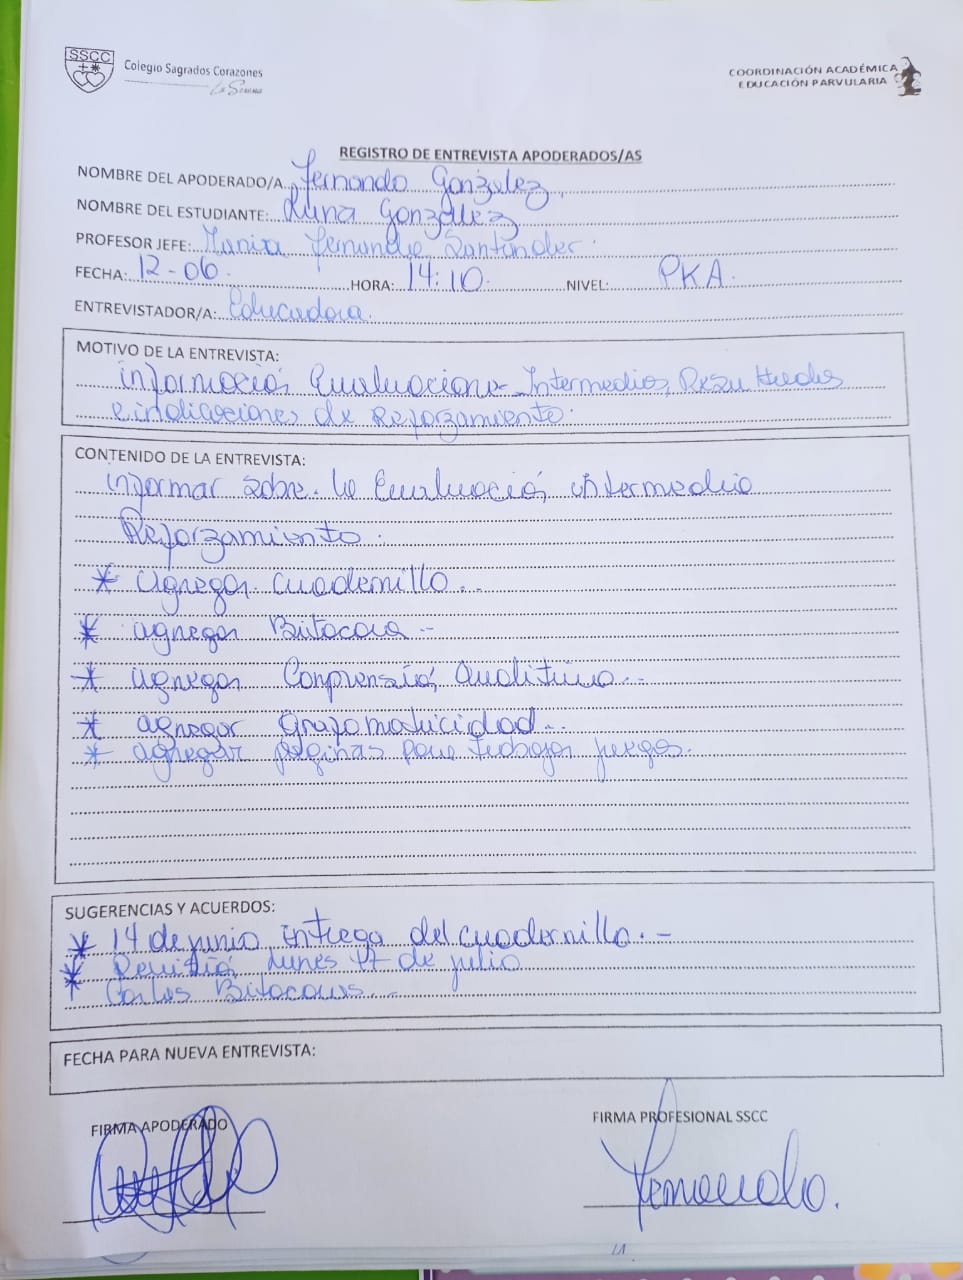 SSCC
Colegio Sagrados Corazones
La Serena
COORDINACIÓN ACADÉMICA
EDUCACIÓN PARVULARIA
REGISTRO DE ENTREVISTA APODERADOS/AS
NOMBRE DEL APODERADO/A Fernando González
NOMBRE DEL ESTUDIANTE: Luna González
PROFESOR JEFE: María Fernanda Santander
FECHA: 12-06. HORA: 14:10. NIVEL: PKA.
ENTREVISTADOR/A: Educadora.
MOTIVO DE LA ENTREVISTA:
información Evaluaciones Intermedios, Resultados
e indicaciones de Reforzamiento.
CONTENIDO DE LA ENTREVISTA:
informar sobre la Evaluación intermedia
Reforzamiento.
* agregar cuadernillo..
* agregar Bitacora -
* agregar Conprensión, auditiva..
* agregar Grafomotricidad..
* agregar paginas para trabajar juegos.
SUGERENCIAS Y ACUERDOS:
* 14 de junio, entrega del cuadernillo. -
* Revisión, lunes 17 de julio
* Bitacoras..
FECHA PARA NUEVA ENTREVISTA:
FIRMA APODERADO
FIRMA PROFESIONAL SSCC